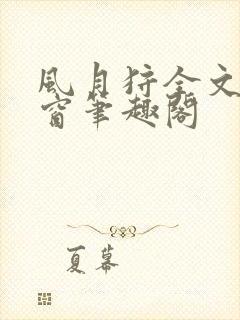 風月狩全文
窗筆趣閣
夏幕